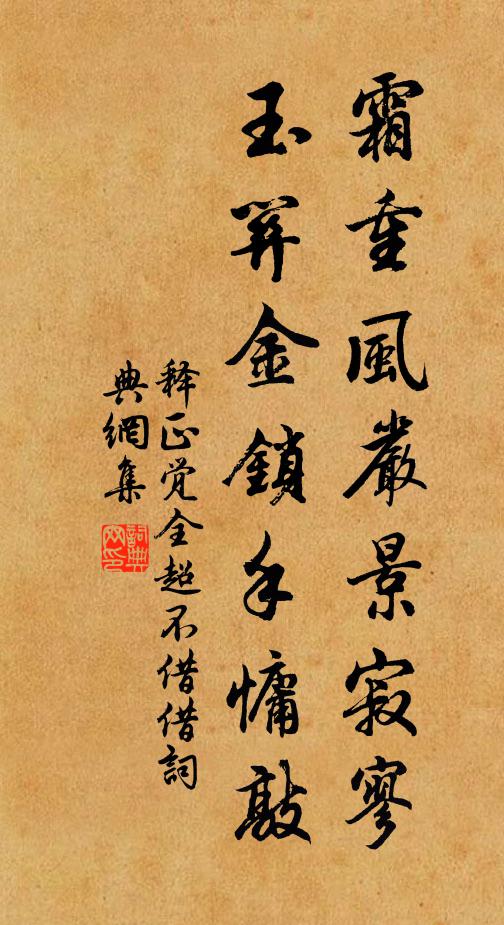 霜重風嚴景寂寥
玉関金鎖手慵敲
释正觉全超不借借詞
典網集
詞典网印